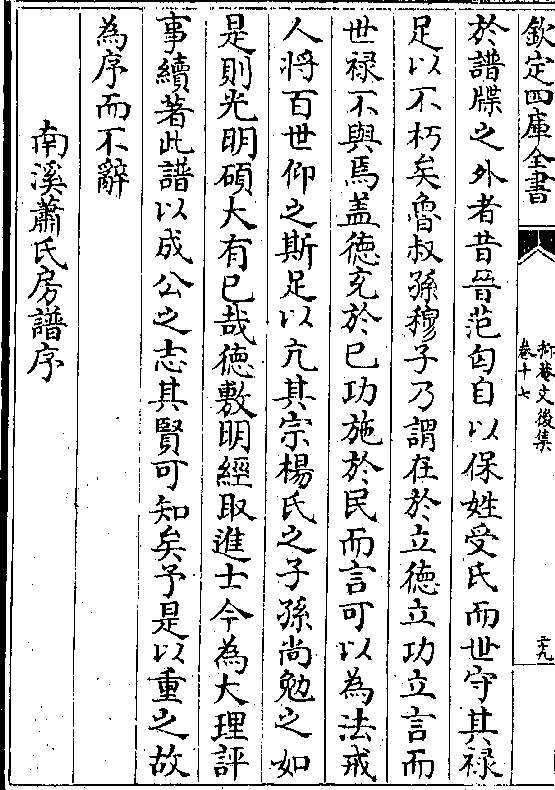 欽定四庫全書
抑菴文後集
卷十七
二十九
於譜牒之外者昔晉范匄自以保姓受氏而世守其祿
足以不朽矣魯叔孫穆子乃謂在於立德立功立言而
世禄不與焉盖徳充於已功施於民而言可以為法戒
人将百世仰之斯足以亢其宗楊氏之子孫尚勉之如
是則光明碩大有已哉徳敷明經取進士今為大理評
事續著此譜以成公之志其賢可知矣予是以重之故
為序而不辭
南溪蕭氏房譜序